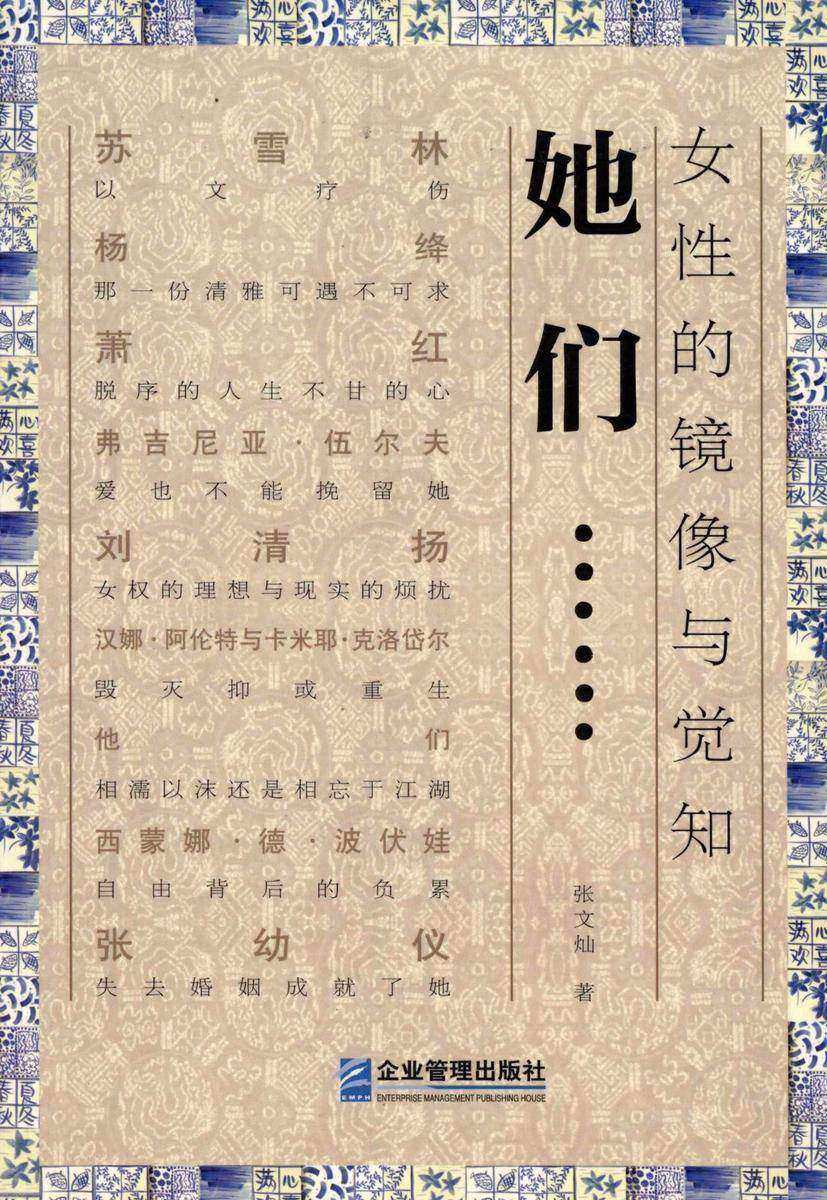 女性的镜像与觉知
她们……
张文灿 著
苏雪林
以文疗伤
杨绛
那一份清雅可遇不可求
萧红
脱序的人生不甘的心
弗吉尼亚·伍尔夫
爱也不能挽留她
刘清扬
女权的理想与现实的烦扰
汉娜·阿伦特与卡米耶·克洛岱尔
毁灭抑或重生
他们
相濡以沫还是相忘于江湖
西蒙娜·德·波伏娃
自由背后的负累
张幼仪
失去婚姻成就了她
EMPH
企业管理出版社
ENTERPRISE MANAGEMENT PUBLISHING HOUSE
满心欢喜
春夏秋冬